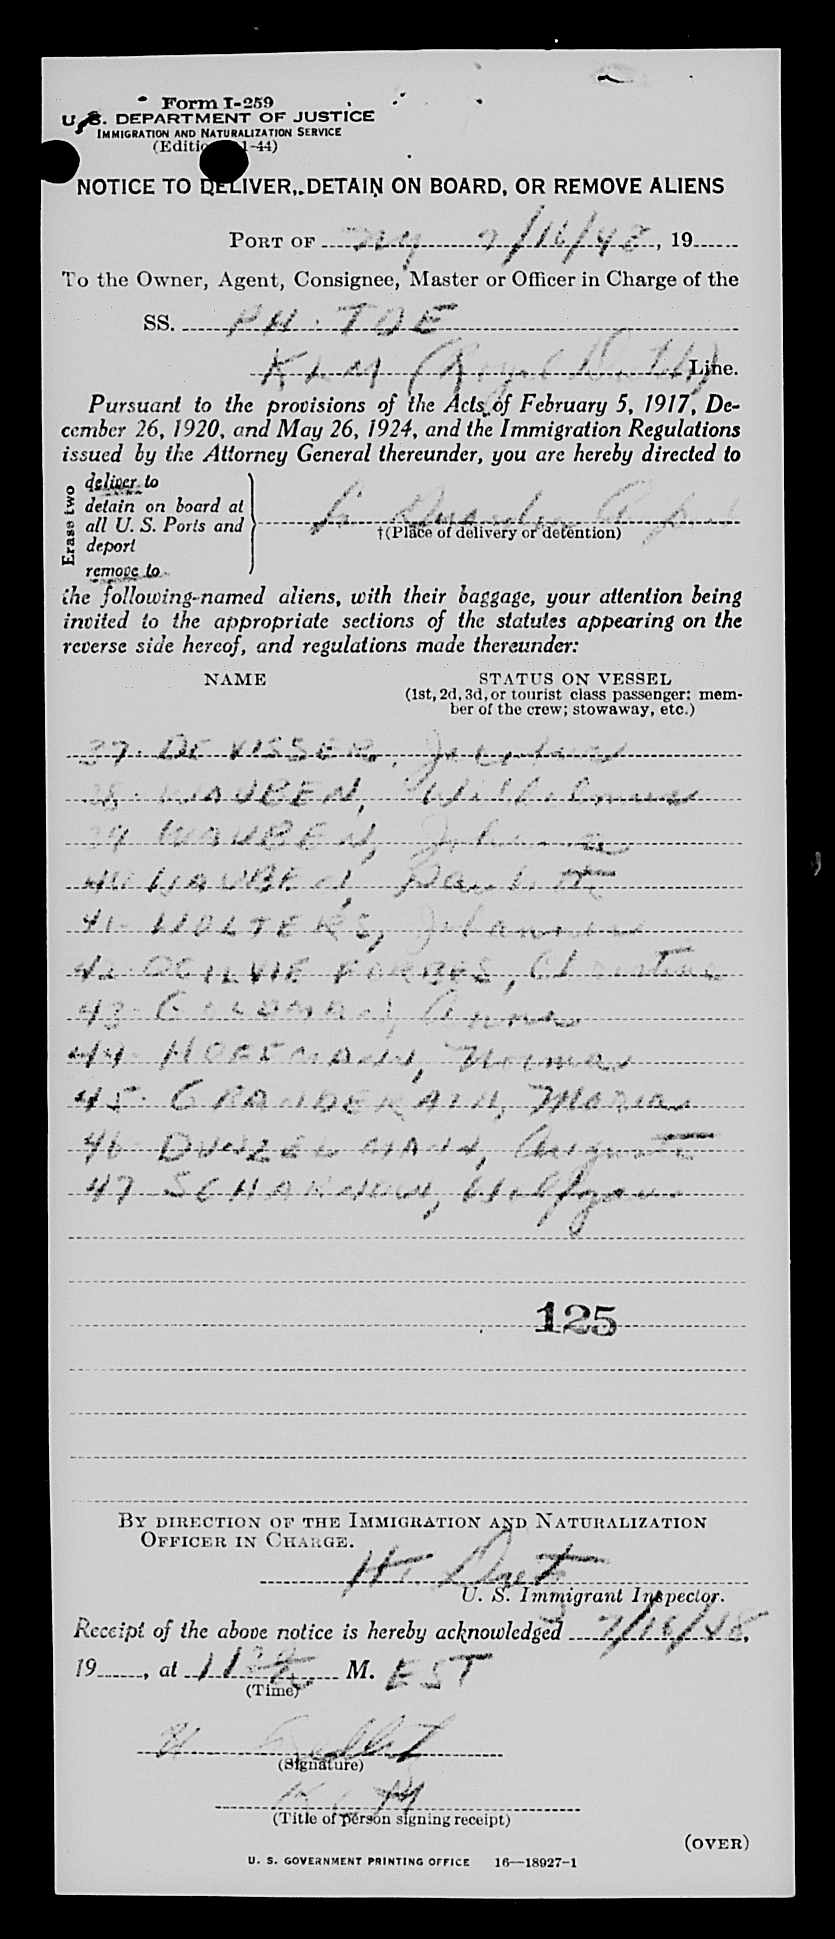 Form I-259
U. S. DEPARTMENT OF JUSTICE
IMMIGRATION AND NATURALIZATION SERVICE
(Editi 1-44)
NOTICE TO DELIVER, DETAIN ON BOARD, OR REMOVE ALIENS
PORT OF NY 7/16/48, 19
To the Owner, Agent, Consignee, Master or Officer in Charge of the
SS. PH-TDE
KLM (Royal Dutch) Line.
Pursuant to the provisions of the Acts of February 5, 1917, De-
cember 26, 1920, and May 26, 1924, and the Immigration Regulations
issued by the Attorney General thereunder, you are hereby directed to
Erase two
deliver to
detain on board at
all U. S. Ports and
deport
remove to
†(Place of delivery or detention)
the following-named aliens, with their baggage, your attention being
invited to the appropriate sections of the statutes appearing on the
reverse side hereof, and regulations made thereunder:
NAME STATUS ON VESSEL
(1st, 2d, 3d, or tourist class passenger; mem-
ber of the crew; stowaway, etc.)
37. DE VISSER,
38. WAUBEN, Wilhelmus
39 WAUBEN,
40 WAUBEN,
41. WOLTERS, Johannes
42 OGILVIE FORBES, Christine
43. GOLDMANN, Anna
44. HOFFMANN, Thomas
45. GRANDERATH, Maria
46 DUNZELMANN, Auguste
47 SCHARNOW, Wolfgang
125
BY DIRECTION OF THE IMMIGRATION AND NATURALIZATION
OFFICER IN CHARGE.
U. S. Immigrant Inspector.
Receipt of the above notice is hereby acknowledged 7/16/48,
19, at M. EST
(Time)
(Signature)
KLM
(Title of person signing receipt)
(OVER)
U. S. GOVERNMENT PRINTING OFFICE 16—18927-1